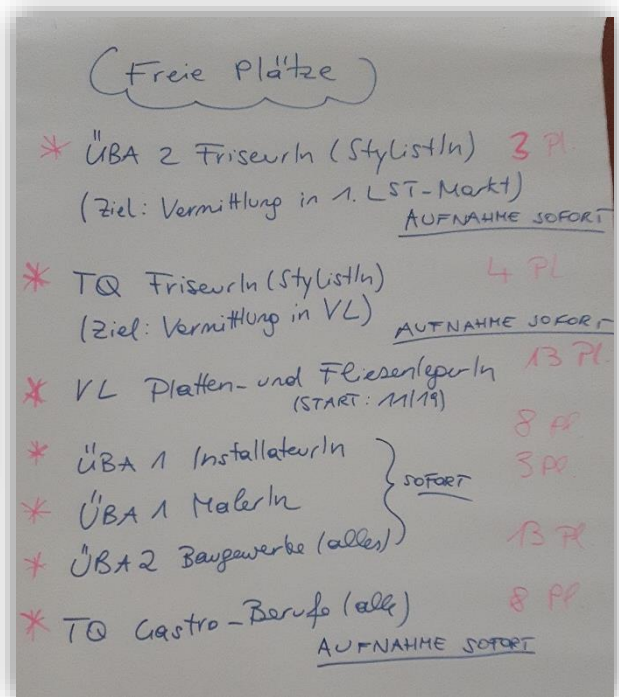 Freie Plätze
* ÜBA 2 FriseurIn (StylistIn) 3 Pl.
(Ziel: Vermittlung in 1. LST-Markt)
AUFNAHME SOFORT
* TQ FriseurIn (StylistIn) 4 Pl
(Ziel: Vermittlung in VL)
AUFNAHME SOFORT
* VL Platten- und FliesenlegerIn 13 Pl.
(START: 11/19)
* ÜBA 1 InstallateurIn 8 Pl.
* ÜBA 1 MalerIn SOFORT 3 Pl.
* ÜBA 2 Baugewerbe (alles) 13 Pl.
* TQ Gastro-Berufe (alle) 8 Pl.
AUFNAHME SOFORT